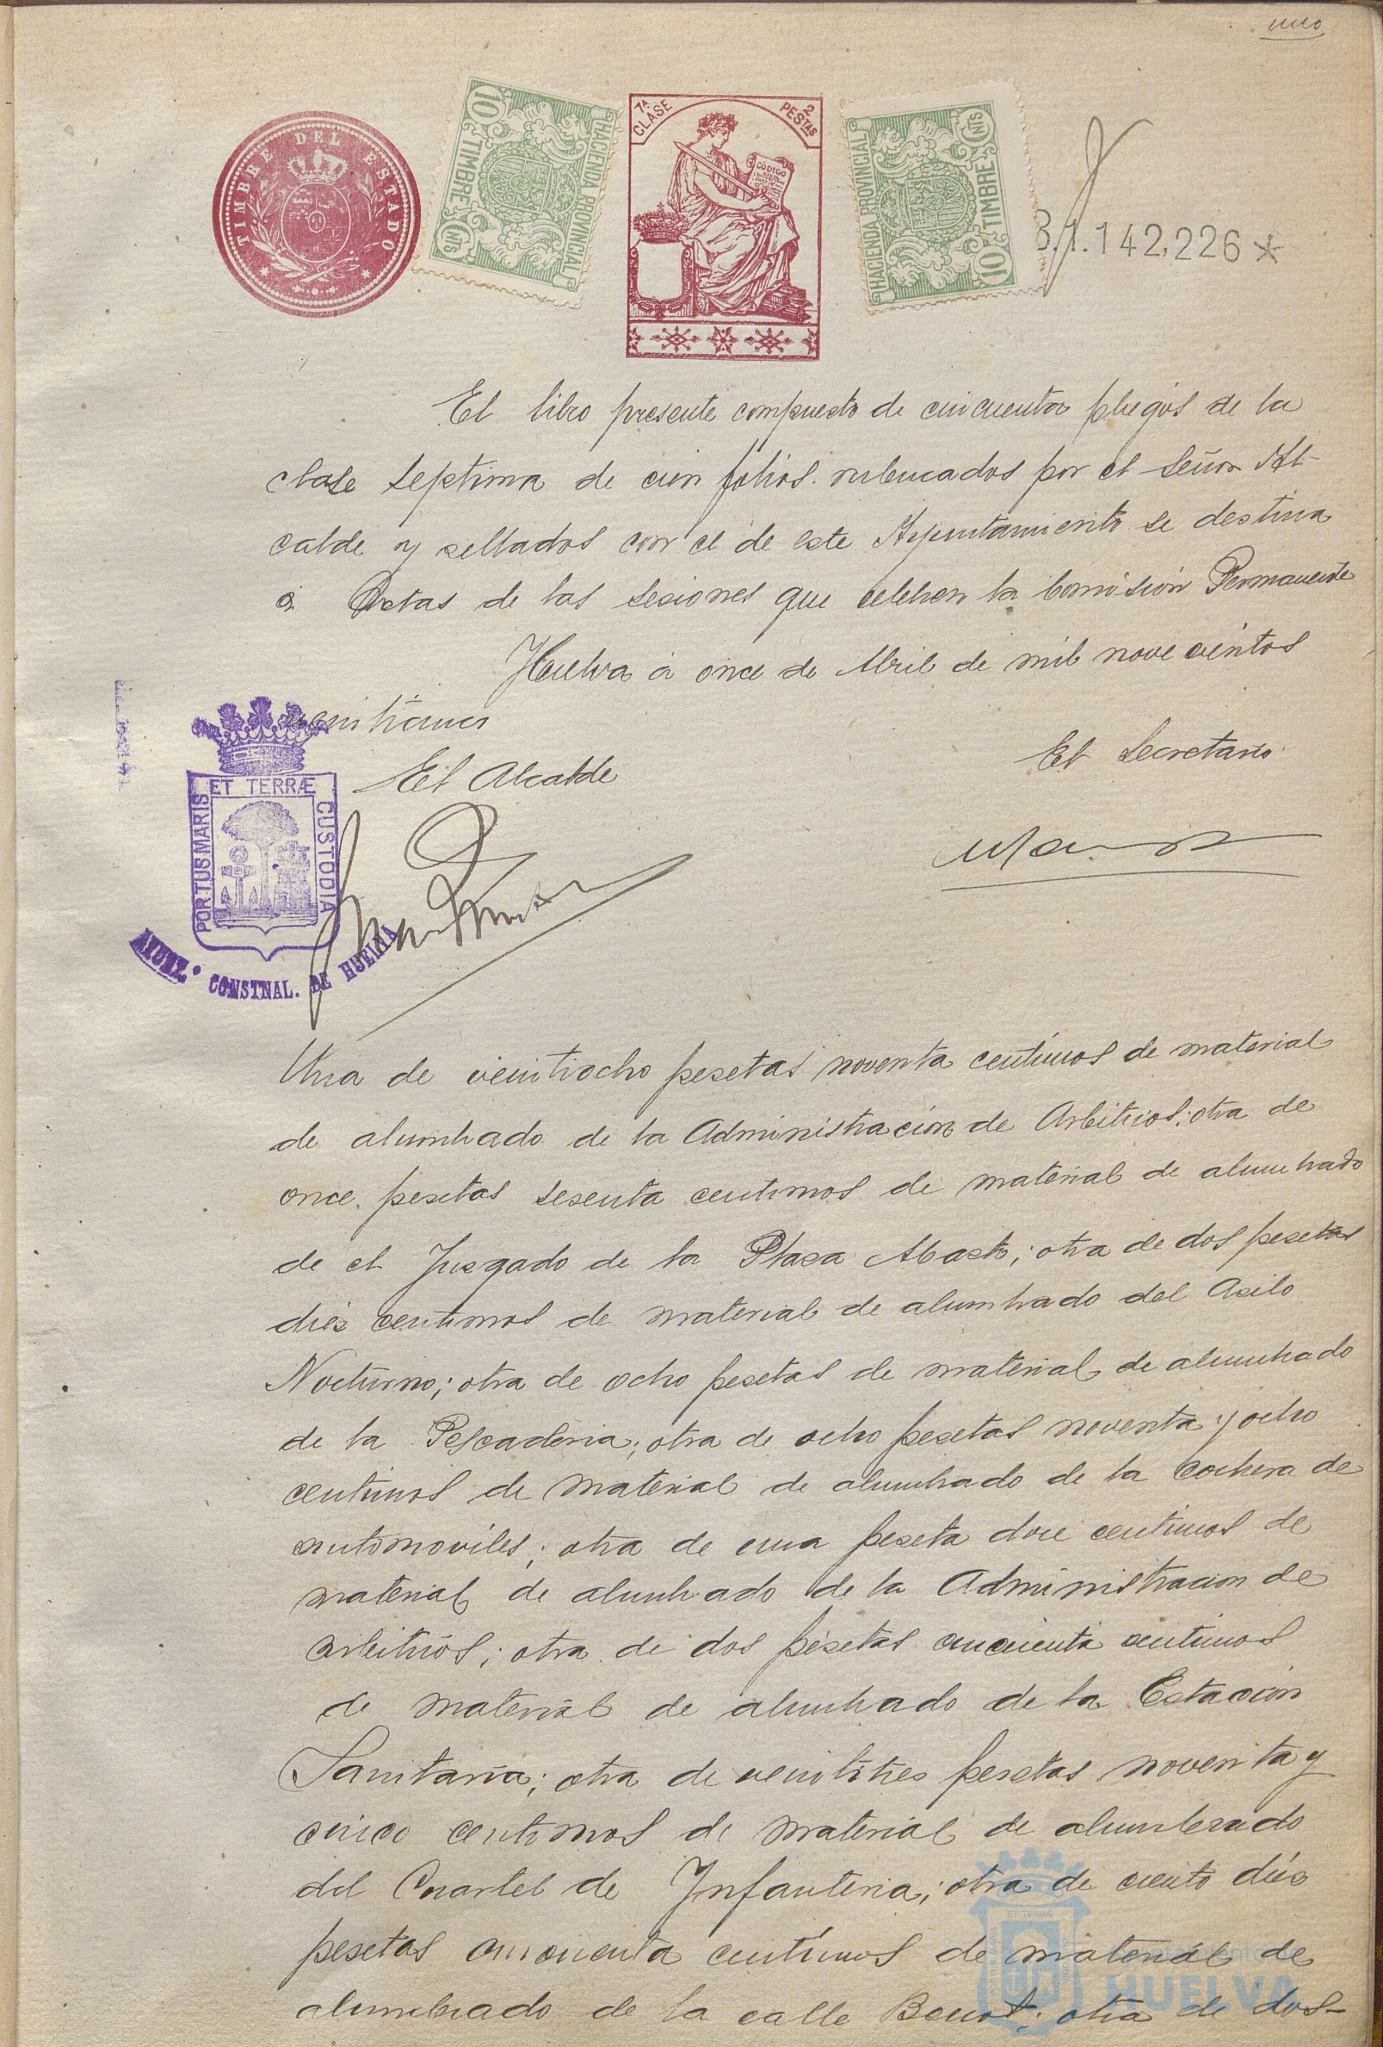 uno
TIMBRE DEL ESTADO
10 TIMBRE CNTS
HACIENDA PROVINCIAL
7ª CLASE
2 PESTAS
CODIGO
HACIENDA PROVINCIAL
10 TIMBRE CNTS
B.1.142,226*
El libro presente compuesto de cincuenta pliegos de la
clase septima de cien folios rubricados por el Señor Al-
calde y sellados con el de este Ayuntamiento se destina
á Actas de las sesiones que celebren la Comisión Permanente
Huelva á once de Abril de mil novecientos
El Secretario
El Alcalde
PORTUS MARIS ET TERRÆ CUSTODIA
AYUNT. CONSTNAL. DE HUELVA
Una de veintiocho pesetas noventa centimos de material
de alumbrado de la Administracion de Arbitrios; otra de
once pesetas sesenta centimos de material de alumbrado
de el Juzgado de la Plaza Abasto; otra de dos pesetas
diés centimos de material de alumbrado del Asilo
Nocturno; otra de ocho pesetas de material de alumbrado
de la Pescaderia; otra de ocho pesetas noventa y ocho
centimos de material de alumbrado de la cochera de
automoviles; otra de una peseta doce centimos de
material de alumbrado de la Administracion de
arbitrios; otra de dos pesetas cincuenta centimos
de material de alumbrado de la Estación
Sanitaria; otra de veintitres pesetas noventa y
cinco centimos de material de alumbrado
del Cuartel de Infanteria; otra de ciento diés
pesetas cincuenta centimos de material de
alumbrado de la calle Benot; otra de dos-
HUELVA